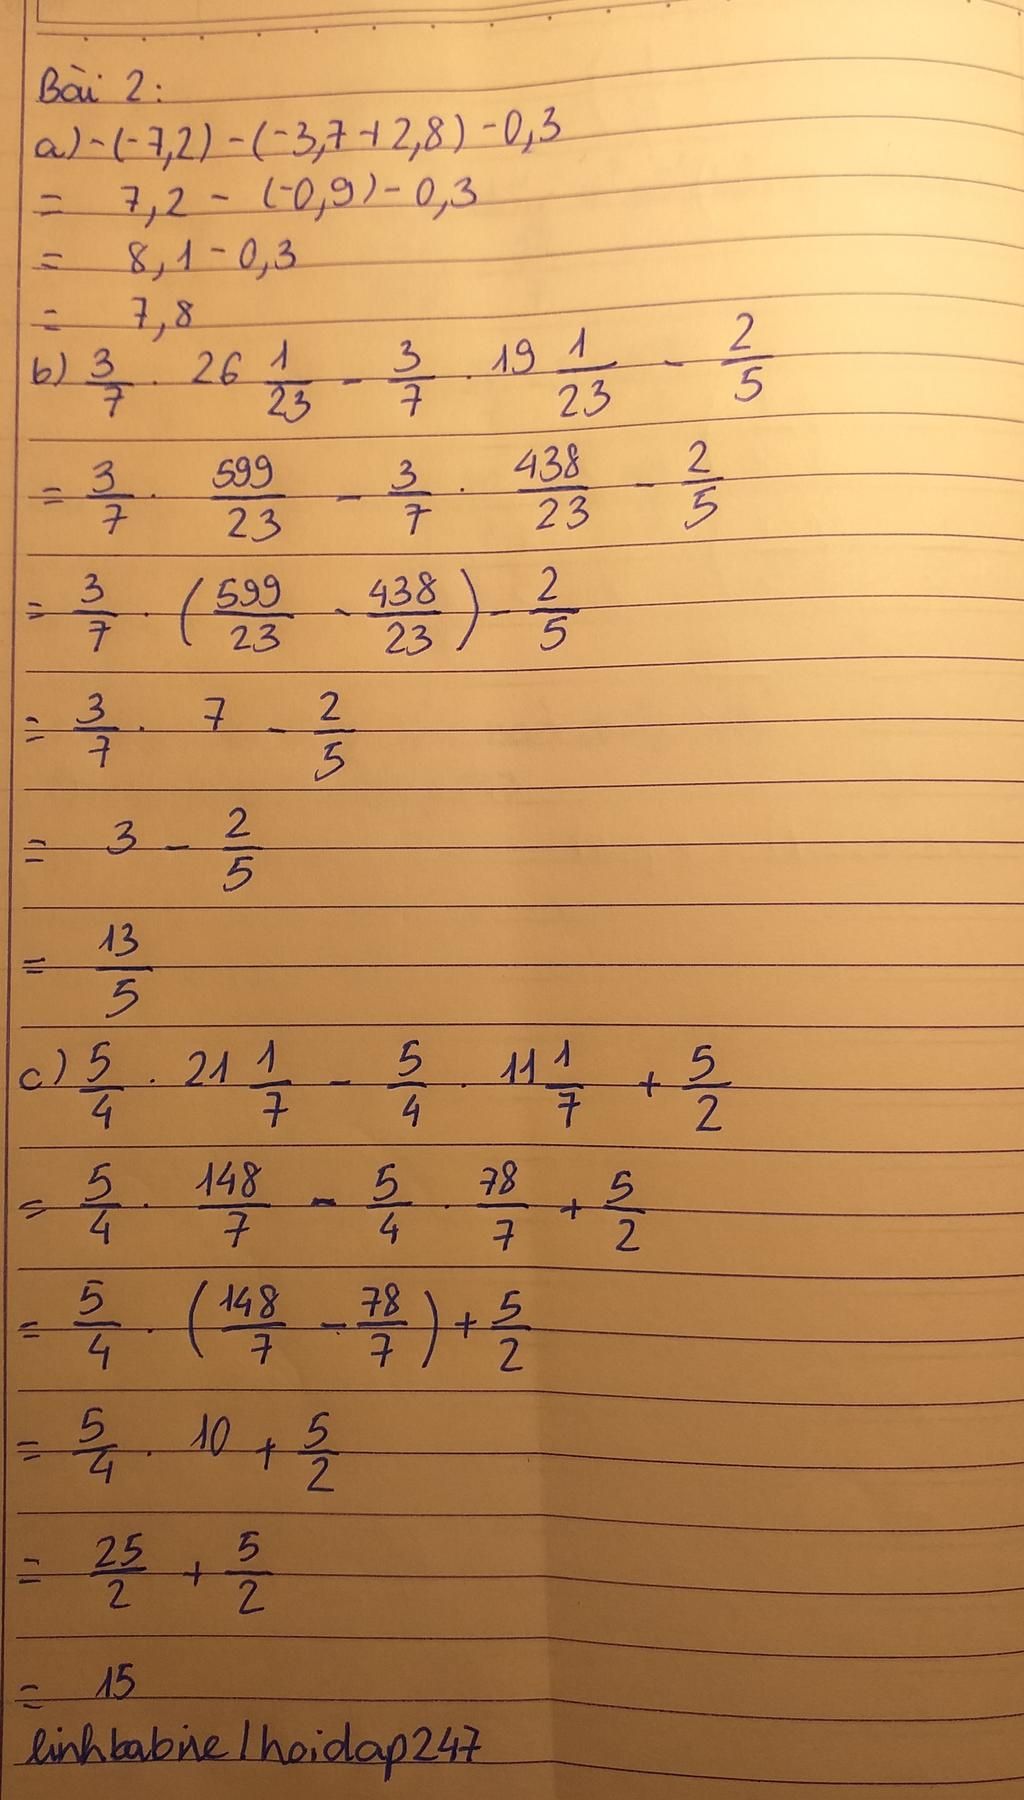 Bài 2:
a) -(-7,2) - (-3,7+2,8) - 0,3
= 7,2 - (-0,9) - 0,3
= 8,1 - 0,3
= 7,8
b) 3/7 . 26 1/23 - 3/7 . 19 1/23 - 2/5
= 3/7 . 599/23 - 3/7 . 438/23 - 2/5
= 3/7 . (599/23 - 438/23) - 2/5
= 3/7 . 7 - 2/5
= 3 - 2/5
= 13/5
c) 5/4 . 21 1/7 - 5/4 . 11 1/7 + 5/2
= 5/4 . 148/7 - 5/4 . 78/7 + 5/2
= 5/4 . (148/7 - 78/7) + 5/2
= 5/4 . 10 + 5/2
= 25/2 + 5/2
= 15
linhbabie/hoidap247